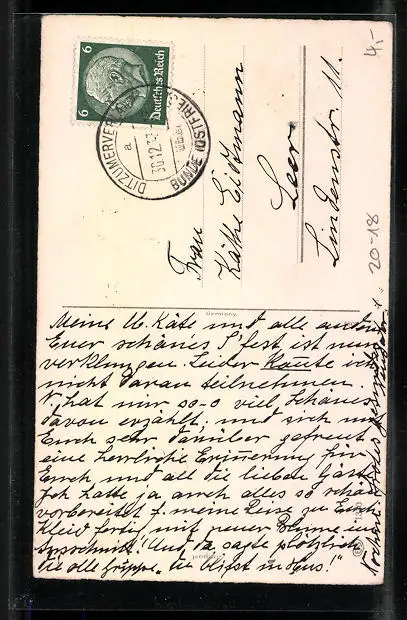 6 6
Deutsches Reich
DITZUMERVER
a
30.12.3
BUNDE (OSTFRIES
4.-
Frau
Käthe Eidtmann
Leer
Lindenstr. 11.
20-18
Germany
Meine lb. Käte und alle andern
Euer schönes S'fest ist nun
verklungen. Leider konnte ich
nicht daran teilnehmen.
N. hat mir so-o viel Schönes
davon erzählt, und sich mit
Euch sehr darüber gefreut
eine herrliche Erinnerung für
Euch und all die lieben Gäste
Ich hatte ja auch alles so schön
vorbereitet z. meine Reise zu Euch
Kleid fertig mit neuer Blume im
Ausschnitt! Und da sagte plötzlich
die olle Grippe „du blifst in Hus!"